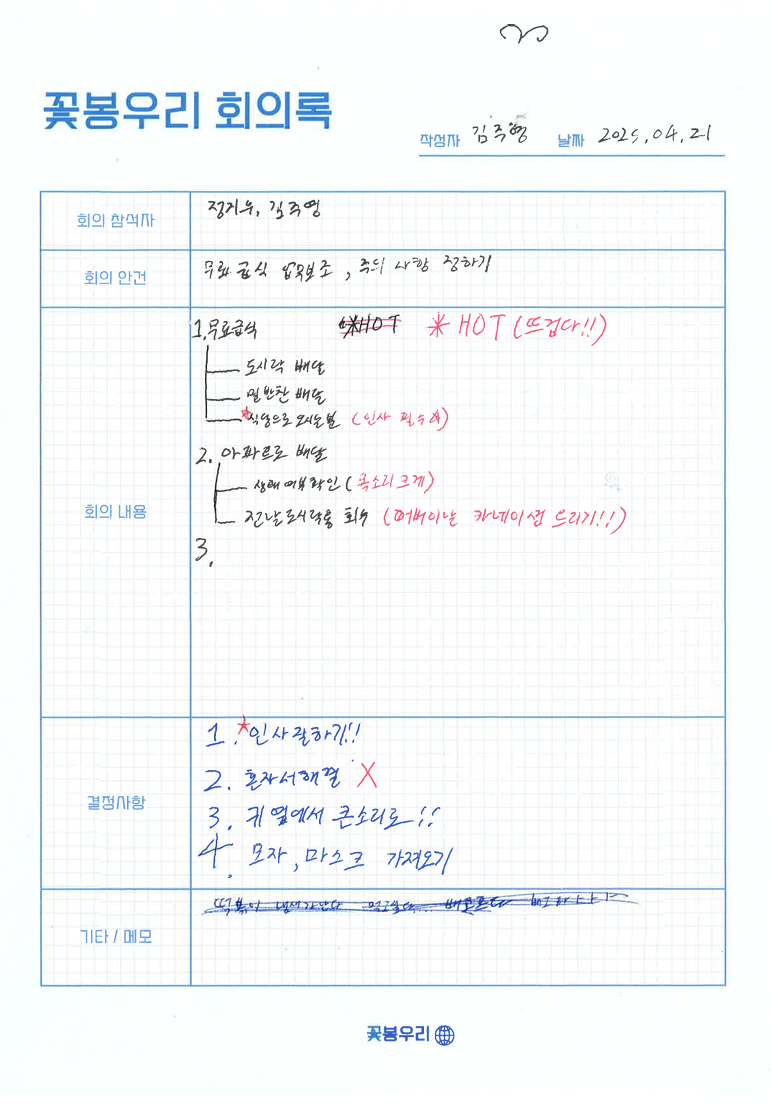 꽃봉우리 회의록
작성자 김주영 날짜 2025.04.21
회의 참석자 정지우, 김주영
회의 안건 무료 급식 업무보조, 주의 사항 정하기
회의 내용
1. 무료급식 *HOT * HOT (뜨겁다!!)
도시락 배달
밑반찬 배달
*식당으로 오시는 분 (인사 필수)
2. 아파트로 배달
상태 여부 확인 (목소리 크게)
전날 도시락통 회수 (어버이날 카네이션 드리기!!)
3.
결정사항
1. *인사 잘하기!!
2. 혼자서 해결 X
3. 귀 옆에서 큰소리로!!
4. 모자, 마스크 가져오기
기타 / 메모
떡볶이 냄새가 난다 먹고싶다... 배고프다
꽃봉우리